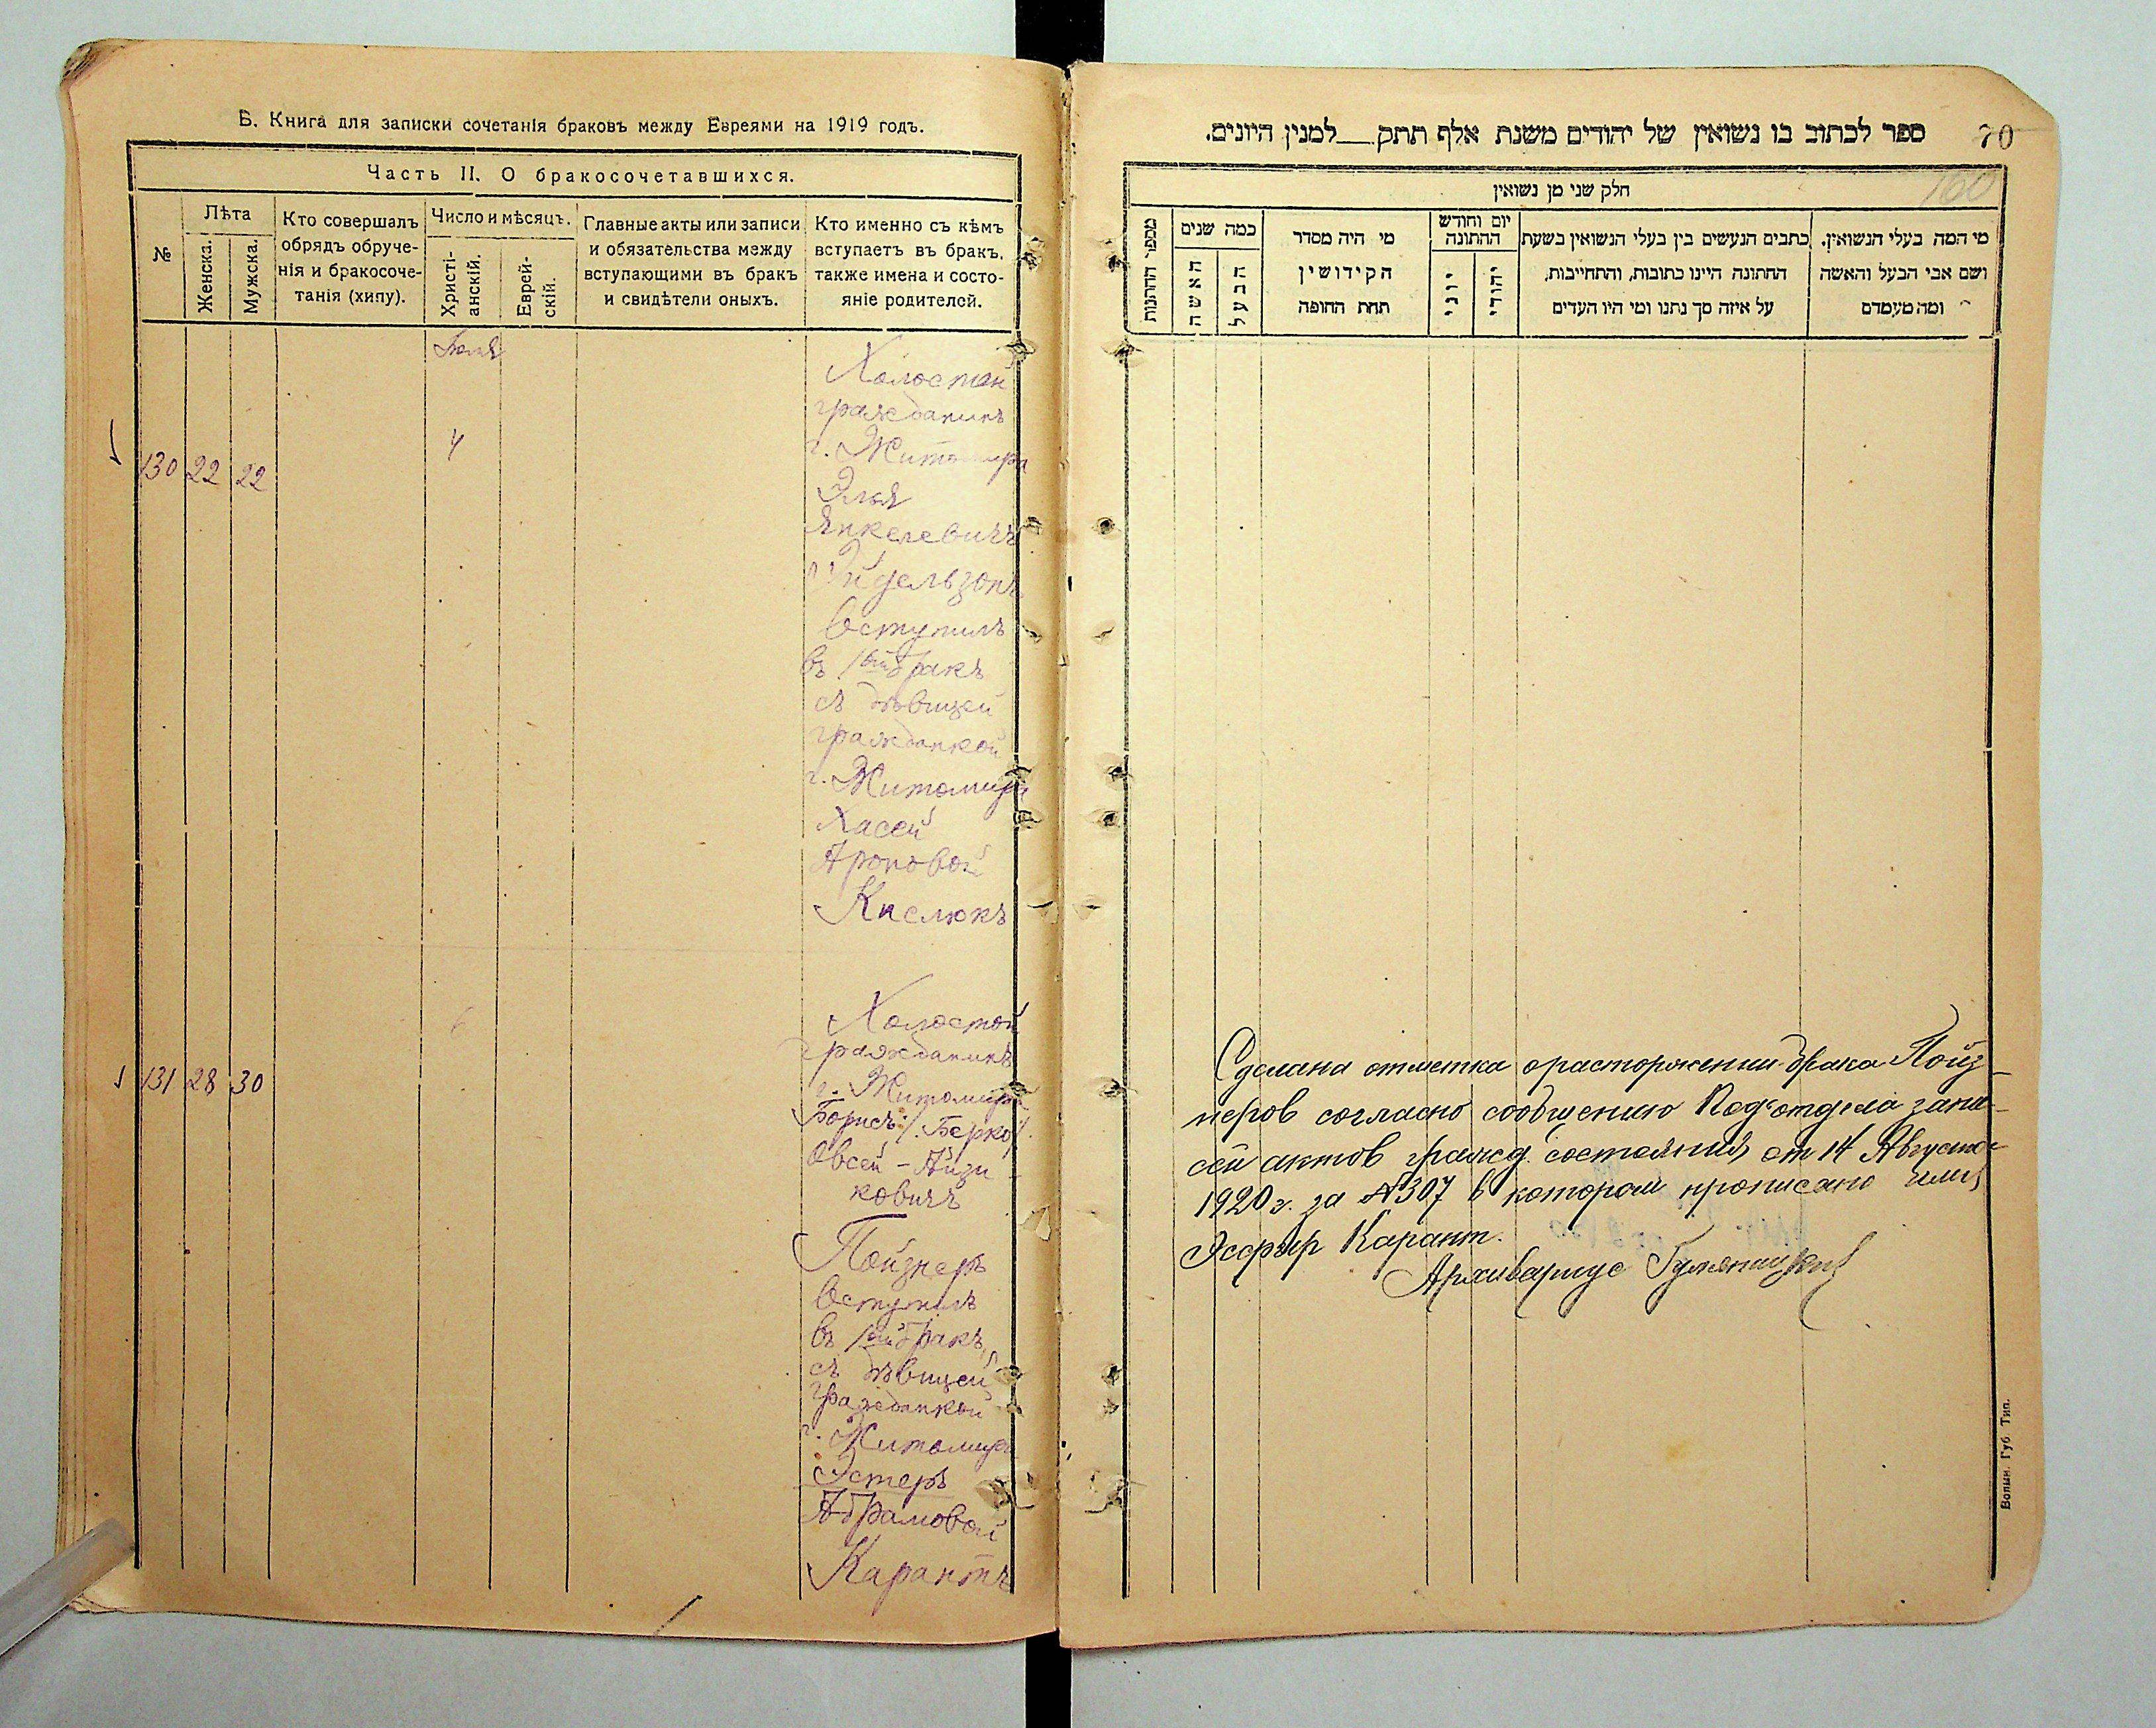 Б. Книга для записки сочетанія браковъ между Евреями на 1919 годъ.
Часть II. О бракосочетавшихся.
№
Лѣта
Женска.
Мужска.
Кто совершалъ
обрядъ обруче-
нія и бракосоче-
танія (хипу).
Число и мѣсяцъ.
Христі-
анскій.
Еврей-
скій.
Главные акты или записи
и обязательства между
вступающими въ бракъ
и свидѣтели оныхъ.
Кто именно съ кѣмъ
вступаетъ въ бракъ,
также имена и состо-
яніе родителей.
130 22 22
4
Холостой
гражданинъ
г. Житомира
Элья
Янкелевичъ
Эйдельзонъ
вступилъ
въ 1ый бракъ
съ дѣвицей
гражданкой
г. Житомира
Хасей
Ароновой
Кислюкъ
131 28 30
6
Холостой
гражданинъ
г. Житомира
Борисъ /Берко/
Овсей-Айзи
ковичъ
Пойзнеръ
вступилъ
въ 1ый бракъ
съ дѣвицей
гражданкой
г. Житомира
Эстеръ
Абрамовой
Карантъ
70
160
ספר לכתוב בו נשואין של יהודים משנת אלף תתק__למנין היונים.
חלק שני מן נשואין
מי המה בעלי הנשואין.
ושם אבי הבעל והאשה
ומה מעמדם
כתבים הנעשים בין בעלי הנשואין בשעת
החתונה היינו כתובות, והתחייבות,
על איזה סך נתנו ומי היו העדים
יום וחודש
החתונה
יהודי
יוני
מי היה מסדר
הקידושין
תחת החופה
כמה שנים
הבעל
האשה
מספר החתונות
Сделана отметка о расторжении брака Пойз-
неров согласно сообщению Под'отдела запи-
сей актов гражд. состояния от 14 Августа
1920 г. за №307 в котором прописано имя
Эсфир Карант.
Архивариус
Волын. Губ. Тип.